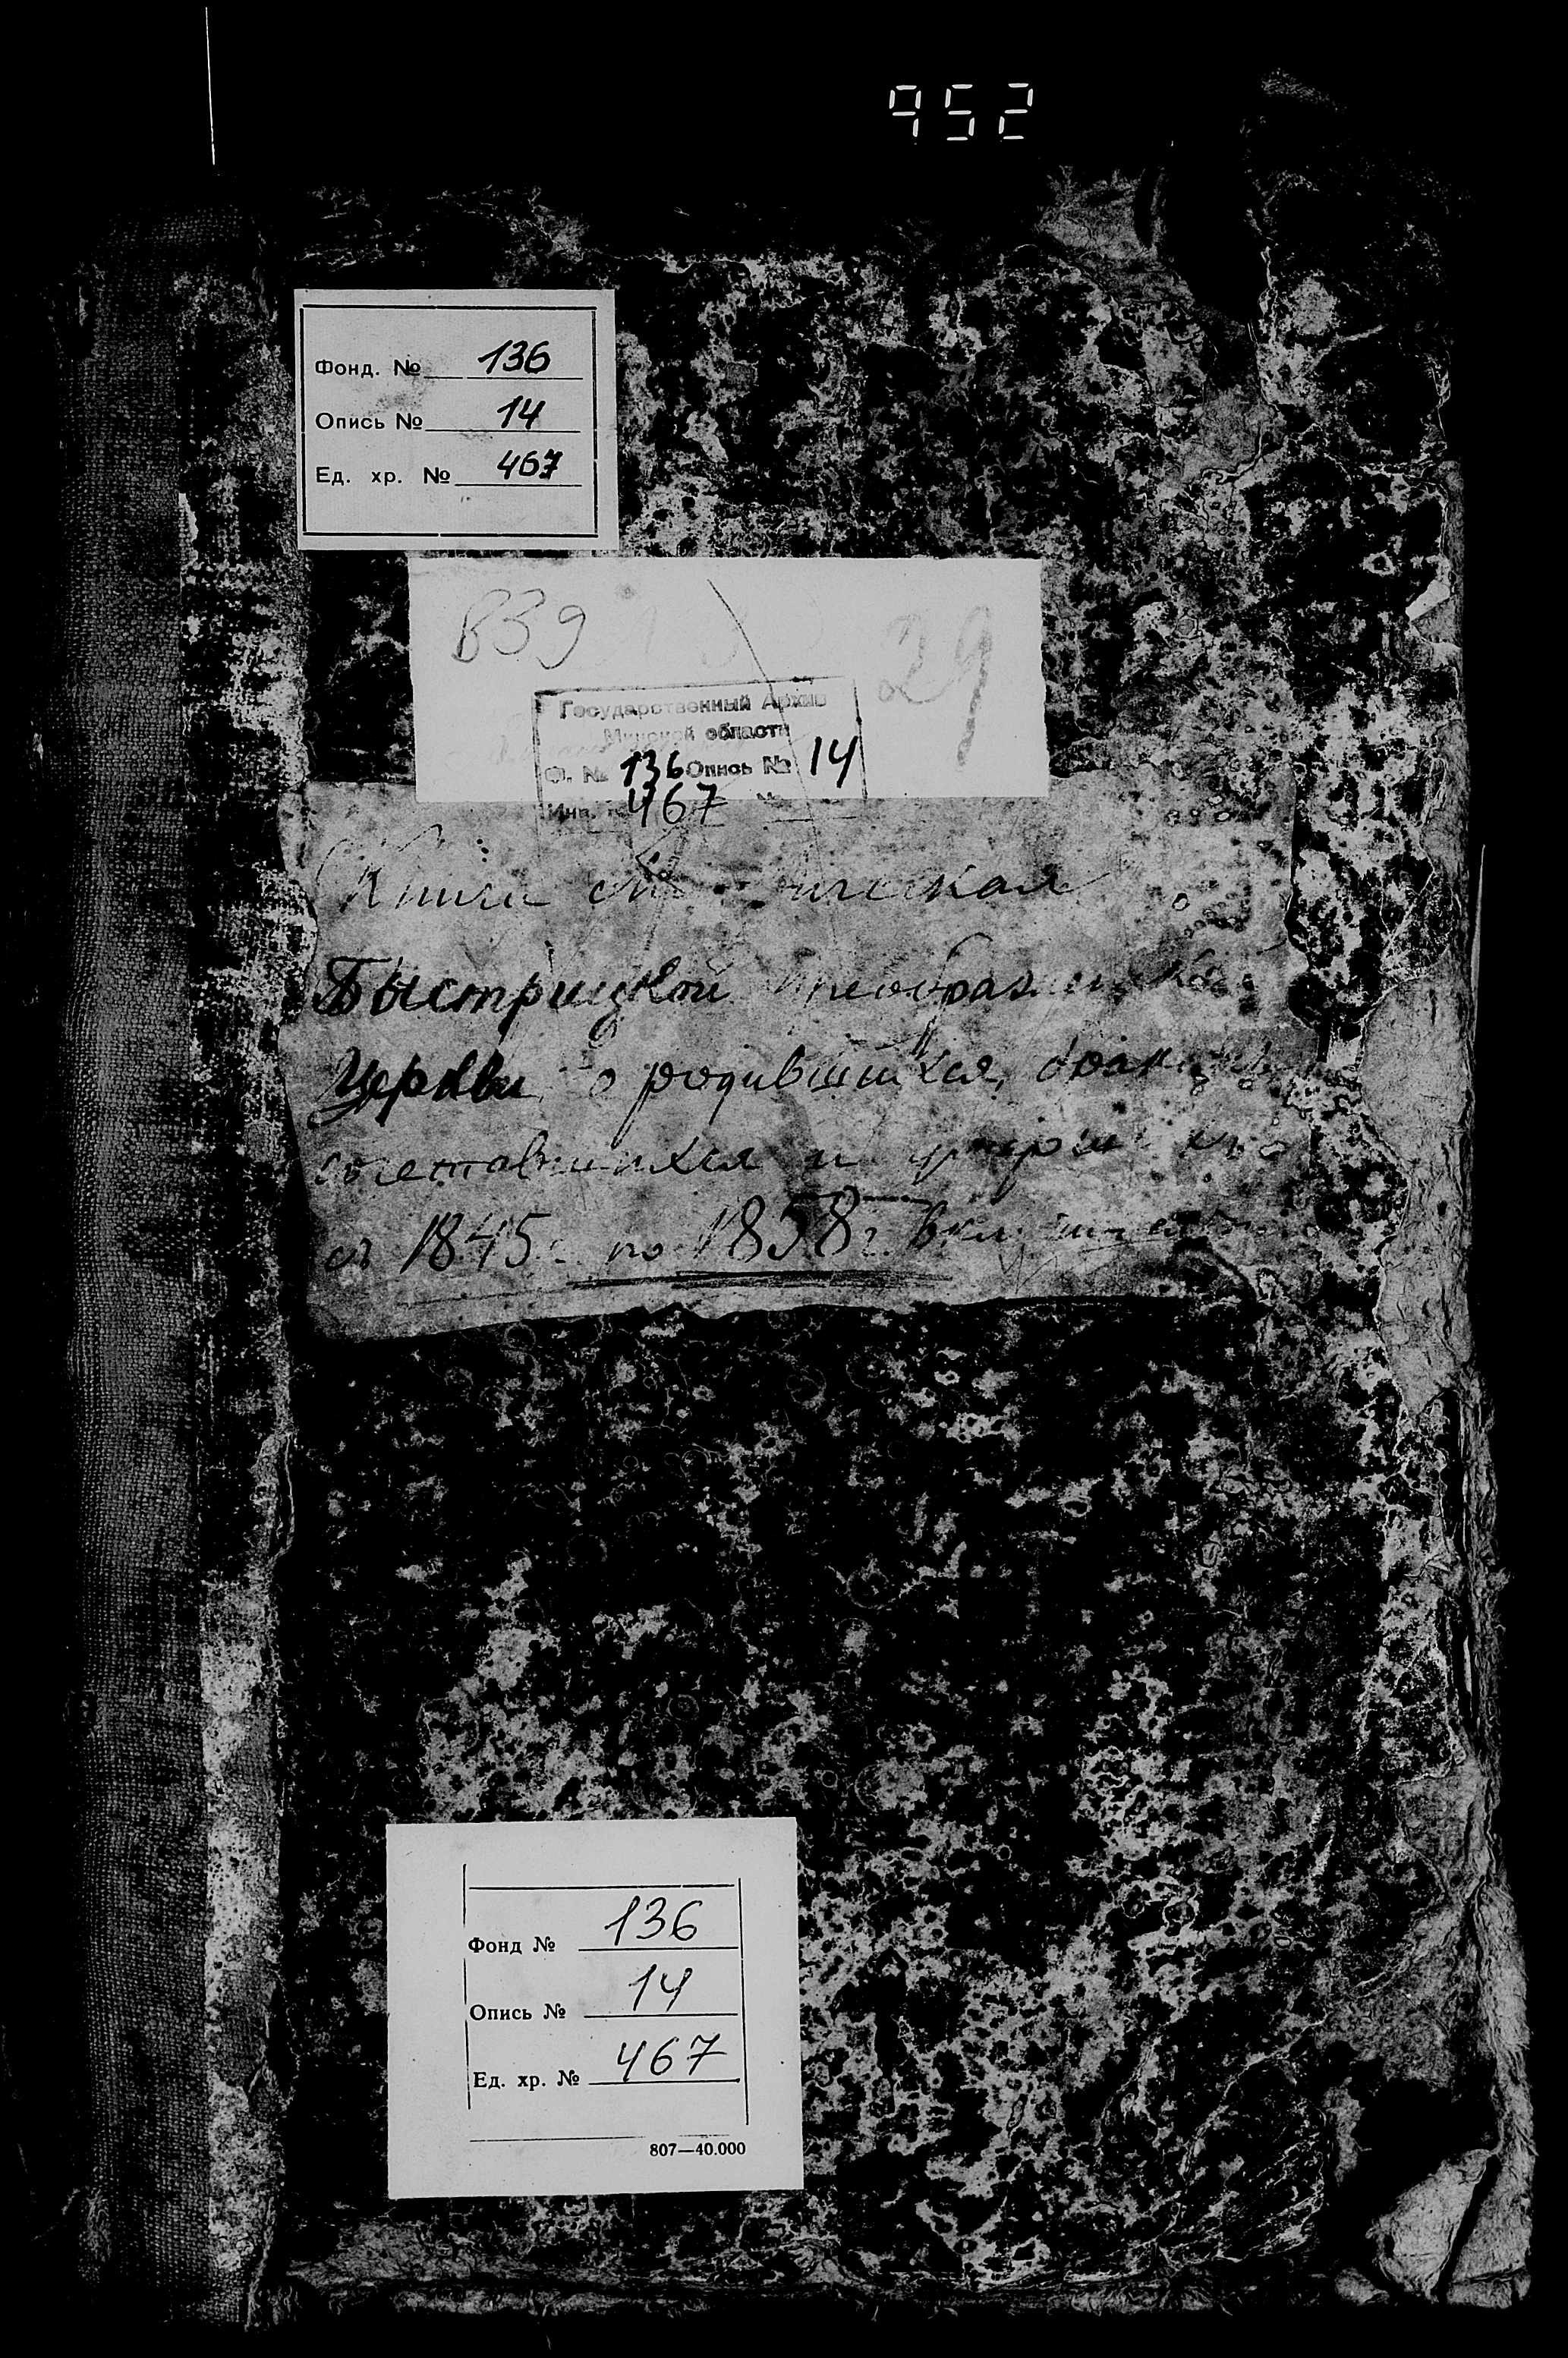 952
Фонд. № 136
Опись № 14
Ед. хр. № 467
В39
29
Государственный Архив
Минской области
Ф. № 136 Опись № 14
Инв. № 467
Книга
Быстрицкой
Церкви о родившихся,
сочетавшихся и
съ 1845 г. по 1858 г.
Фонд № 136
Опись № 14
Ед. хр. № 467
807—40.000